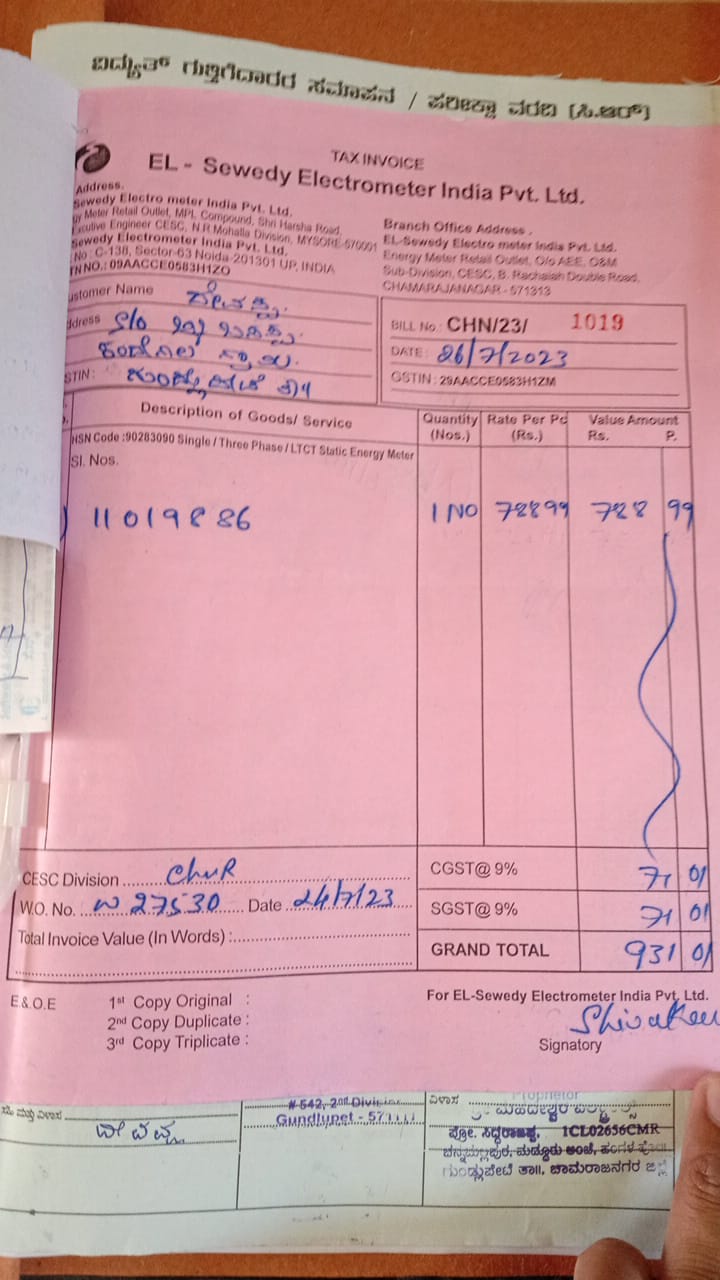 ವಿದ್ಯುತ್ ಗುತ್ತಿಗೆದಾರರ ಸಮಾಪನ / ಪರೀಕ್ಷಾ ವರದಿ (ಸಿ.ಆರ್)
TAX INVOICE
EL - Sewedy Electrometer India Pvt. Ltd.
Address.
Sewedy Electro meter India Pvt. Ltd.
gy Meter Retail Outlet, MPL Compound, Shri Harsha Road,
Exculive Engineer CESC, N.R Mohalla Division, MYSORE-570001
Sewedy Electrometer India Pvt. Ltd.
No : C-138, Sector-63 Noida-201301 UP, INDIA
TN NO.: 09AACCE0583H1ZO
Branch Office Address .
EL-Sewedy Electro meter India Pvt. Ltd.
Energy Meter Retail Outlet, O/o AEE, O&M
Sub-Division, CESC, B. Rachaiah Double Road,
CHAMARAJANAGAR - 571313
ustomer Name
ddress S/o
STIN :
BILL No : CHN/23/ 1019
DATE : 26/7/2023
GSTIN : 29AACCE0583H1ZM
Description of Goods/ Service Quantity (Nos.) Rate Per Pc (Rs.) Value Amount Rs. P.
HSN Code :90283090 Single / Three Phase / LTCT Static Energy Meter
Sl. Nos.
) 11019886 1 NO 78899 788 99
CESC Division ChnR CGST@ 9% 71 01
W.O. No. W 27530 Date 24/7/23 SGST@ 9% 71 01
Total Invoice Value (In Words) : GRAND TOTAL 931 01
E & O.E 1st Copy Original : For EL-Sewedy Electrometer India Pvt. Ltd.
2nd Copy Duplicate :
3rd Copy Triplicate :
Signatory
# 542, 2nd
Gundlupet -
ವಿಳಾಸ
Proprietor
ಪ್ರೋ. ಸಿದ್ದರಾಜಪ್ಪ, 1CL02656CMR
ಗುಂಡ್ಲುಪೇಟೆ ತಾ॥, ಚಾಮರಾಜನಗರ